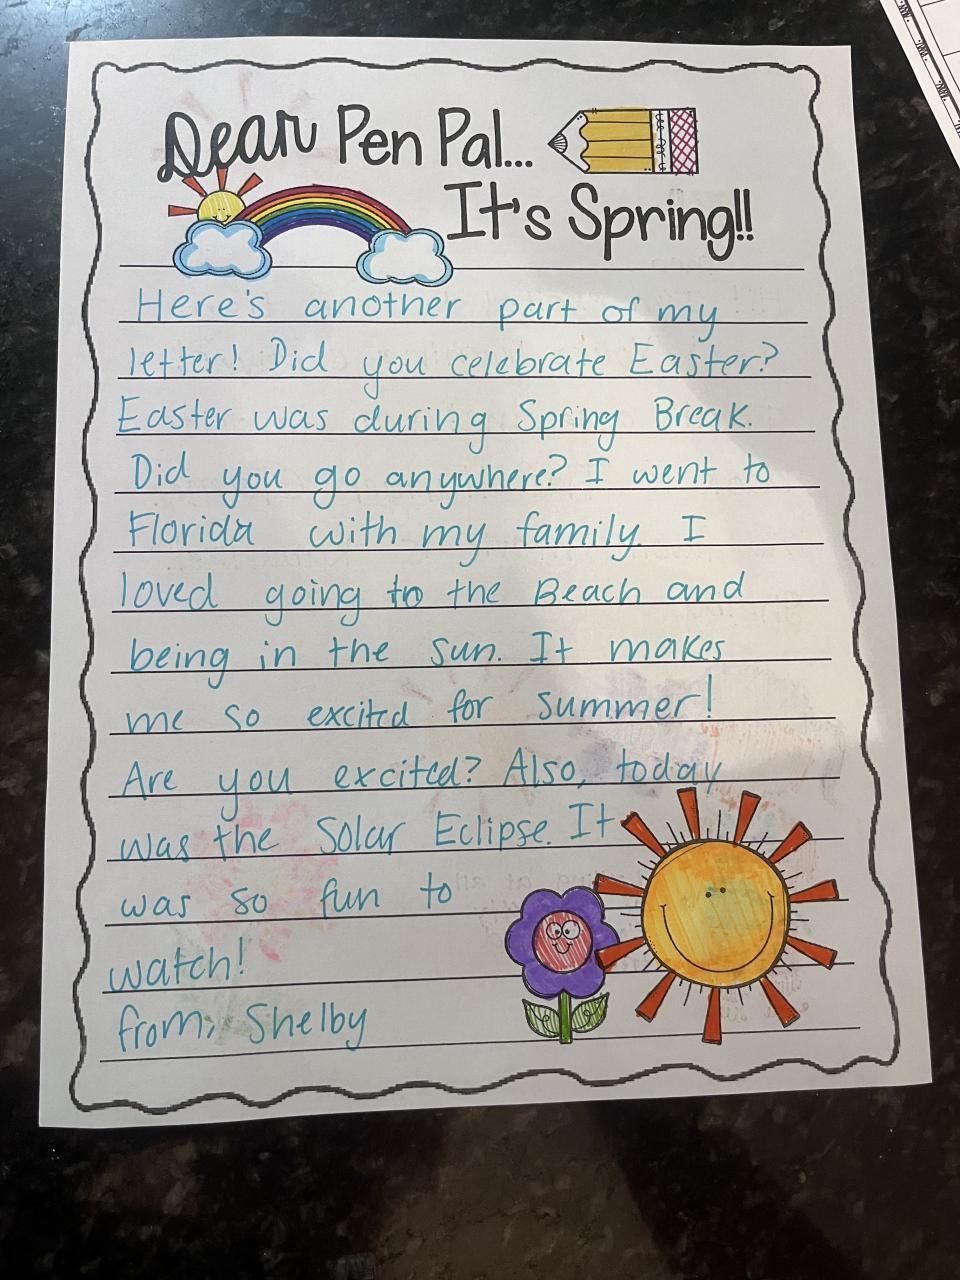 Dear Pen Pal...
It's Spring!!
Here's another part of my
letter! Did you celebrate Easter?
Easter was during Spring Break.
Did you go anywhere? I went to
Florida with my family. I
loved going to the Beach and
being in the sun. It makes
me so excited for summer!
Are you excited? Also, today
was the Solar Eclipse. It
was so fun to
watch!
from, Shelby